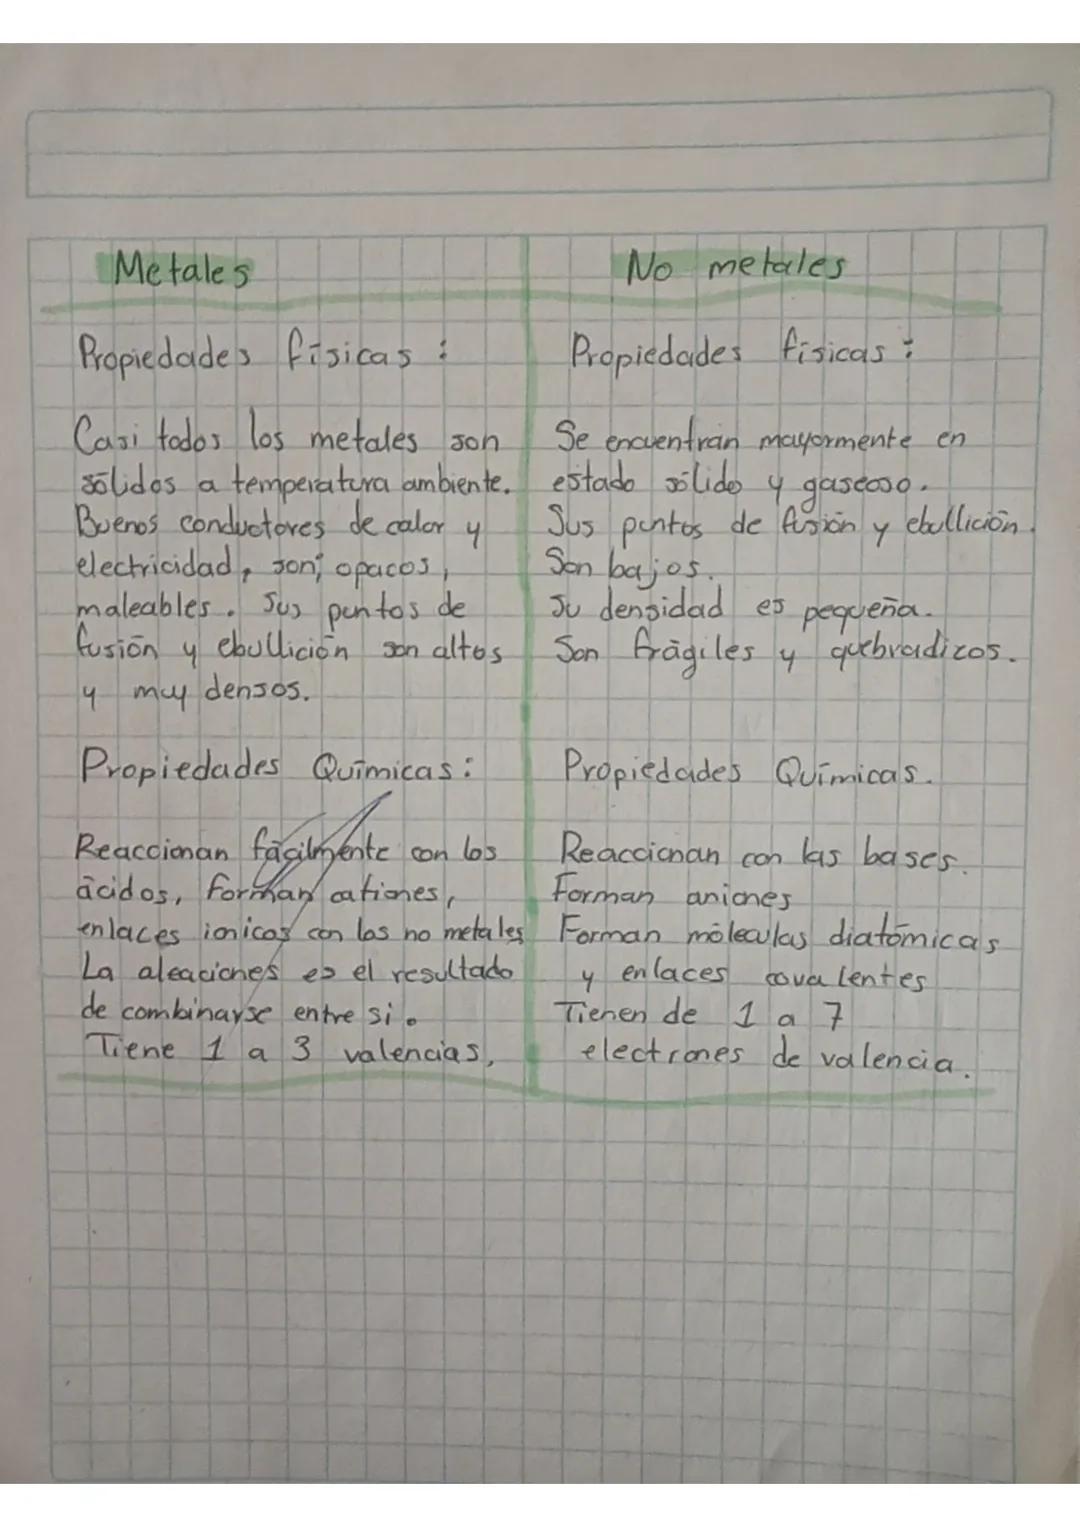 Metales
Propiedades físicas :
Casi todos los metales son
sólidos a temperatura ambiente.
Buenos conductores de calor y
electricidad, son; opacos,
maleables. Sus puntos de
fusión y ebullición son altos
y muy densos.
Propiedades Químicas:
Reaccionan fácilmente con los
ácidos, forman cationes,
enlaces ionicos con los no metales
La aleaciones es el resultado
de combinarse entre si.
Tiene 1 a 3 valencias.
No metales
Propiedades físicas :
Se encuentran mayormente en
estado sólido y gaseoso.
Sus puntos de fusión y ebullición.
Son bajos.
Su densidad es pequeña.
Son frágiles y quebradizos.
Propiedades Químicas.
Reaccionan con las bases.
Forman aniones
Forman móleculas diatómicas
y enlaces covalentes
Tienen de 1 a 7
electrones de valencia.